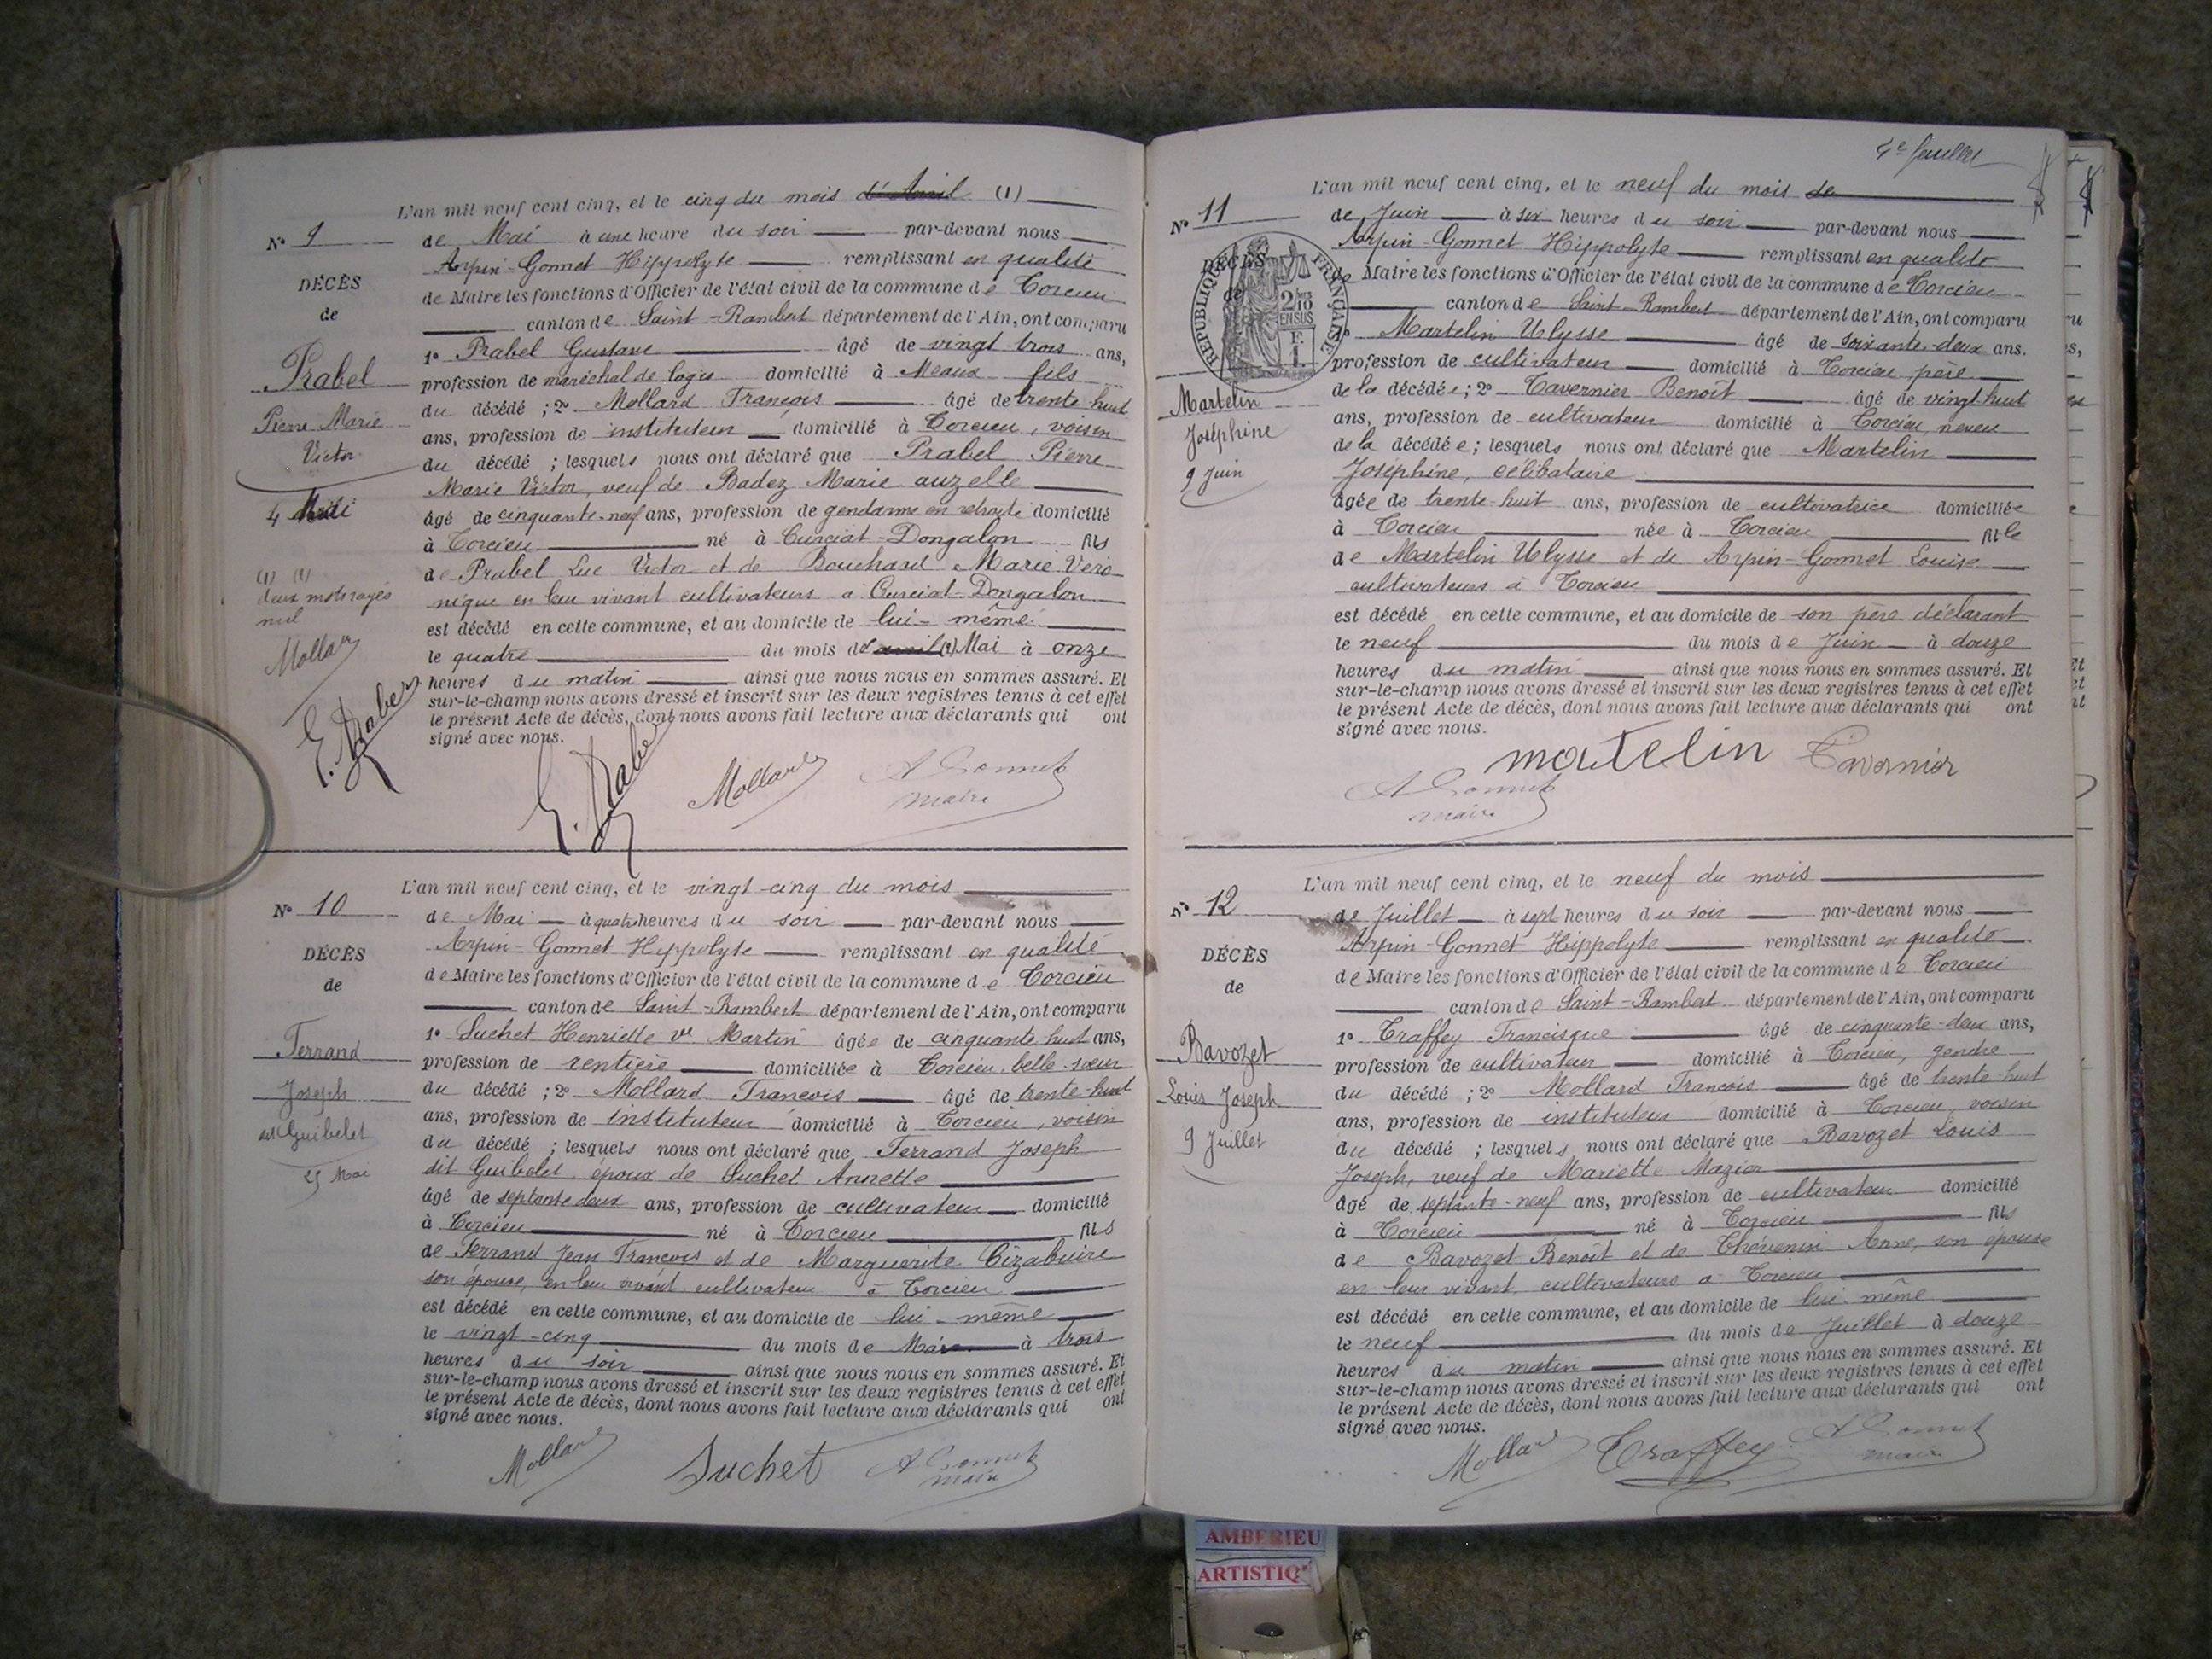 L'an mil neuf cent cinq, et le cinq du mois d'Avril (1)
N° 9
de Mai à une heure du soir par-devant nous
Arpin-Gonnet Hippolyte remplissant en qualité
DÉCÈS
de Maire les fonctions d'Officier de l'état civil de la commune de Torcieu
de
canton de Saint-Rambert département de l'Ain, ont comparu
1° Prabel Gustave âgé de vingt trois ans,
Prabel
profession de maréchal de logis domicilié à Meaux fils
du décédé ; 2° Mollard François âgé de trente huit
Pierre Marie
ans, profession de instituteur domicilié à Torcieu, voisin
Victor
du décédé ; lesquels nous ont déclaré que Prabel Pierre
Marie Victor, veuf de Badez Marie auzelle
4 Mai
âgé de cinquante-neuf ans, profession de gendarme en retraite domicilié
à Torcieu né à Curciat-Dongalon fils
de Prabel Luc Victor et de Bouchard Marie Véro-
(1) (2)
deux mots rayés
nul
nique en leur vivant cultivateurs à Curciat-Dongalon
est décédé en cette commune, et au domicile de lui-même
Mollard
le quatre du mois d'avril (2) Mai à onze
heures du matin ainsi que nous nous en sommes assuré. Et
sur-le-champ nous avons dressé et inscrit sur les deux registres tenus à cet effet
le présent Acte de décès, dont nous avons fait lecture aux déclarants qui ont
signé avec nous.
G. Prabel
G. Prabel Mollard A Gonnet
maire
L'an mil neuf cent cinq, et le vingt-cinq du mois
N° 10
de Mai à quatre heures du soir par-devant nous
Arpin-Gonnet Hippolyte remplissant en qualité
DÉCÈS
de Maire les fonctions d'Officier de l'état civil de la commune de Torcieu
de
canton de Saint-Rambert département de l'Ain, ont comparu
1° Suchet Henriette ve Martin âgée de cinquante huit ans,
Ferrand
profession de rentière domiciliée à Torcieu belle-sœur
Joseph
du décédé ; 2° Mollard François âgé de trente-huit
ans, profession de instituteur domicilié à Torcieu, voisin
dit Guibelet
du décédé ; lesquels nous ont déclaré que Ferrand Joseph
25 Mai
dit Guibelet, époux de Suchet Annette
âgé de septante deux ans, profession de cultivateur domicilié
à Torcieu né à Torcieu fils
de Ferrand Jean François et de Marguerite Cizabuire
son épouse, en leur vivant cultivateur à Torcieu
est décédé en cette commune, et au domicile de lui-même
le vingt-cinq du mois de Mai à trois
heures du soir ainsi que nous nous en sommes assuré. Et
sur-le-champ nous avons dressé et inscrit sur les deux registres tenus à cet effet
le présent Acte de décès, dont nous avons fait lecture aux déclarants qui ont
signé avec nous.
Mollard Suchet A Gonnet
maire
4e feuillet
L'an mil neuf cent cinq, et le neuf du mois de
N° 11
de Juin à six heures du soir par-devant nous
Arpin-Gonnet Hippolyte remplissant en qualité
DÉCÈS
de
RÉPUBLIQUE FRANÇAISE
2/10 EN SUS
F. 1.
de Maire les fonctions d'Officier de l'état civil de la commune de Torcieu
canton de Saint-Rambert département de l'Ain, ont comparu
1° Martelin Ulysse âgé de soixante-deux ans.
profession de cultivateur domicilié à Torcieu père
Martelin
de la décédée; 2° Tavernier Benoît âgé de vingt-huit
ans, profession de cultivateur domicilié à Torcieu, neveu
Joséphine
de la décédée; lesquels nous ont déclaré que Martelin
9 Juin
Joséphine, célibataire
âgée de trente-huit ans, profession de cultivatrice domiciliée
à Torcieu née à Torcieu fille
de Martelin Ulysse et de Arpin-Gonnet Louise
cultivateurs à Torcieu
est décédé en cette commune, et au domicile de son père déclarant
le neuf du mois de Juin à douze
heures du matin ainsi que nous nous en sommes assuré. Et
sur-le-champ nous avons dressé et inscrit sur les deux registres tenus à cet effet
le présent Acte de décès, dont nous avons fait lecture aux déclarants qui ont
signé avec nous.
martelin Tavernier
A Gonnet
maire
L'an mil neuf cent cinq, et le neuf du mois
N° 12
de Juillet à sept heures du soir par-devant nous
Arpin-Gonnet Hippolyte remplissant en qualité
DÉCÈS
de Maire les fonctions d'Officier de l'état civil de la commune de Torcieu
de
canton de Saint-Rambert département de l'Ain, ont comparu
1° Traffey Francisque âgé de cinquante-deux ans,
Bavozet
profession de cultivateur domicilié à Torcieu, gendre
Louis Joseph
du décédé ; 2° Mollard François âgé de trente-huit
ans, profession de instituteur domicilié à Torcieu, voisin
9 Juillet
du décédé ; lesquels nous ont déclaré que Bavozet Louis
Joseph, veuf de Mariette Mazier
âgé de septante-neuf ans, profession de cultivateur domicilié
à Torcieu né à Torcieu fils
de Bavozet Benoît et de Thévenin Anne, son épouse
en leur vivant cultivateurs à Torcieu
est décédé en cette commune, et au domicile de lui-même
le neuf du mois de Juillet à douze
heures du matin ainsi que nous nous en sommes assuré. Et
sur-le-champ nous avons dressé et inscrit sur les deux registres tenus à cet effet
le présent Acte de décès, dont nous avons fait lecture aux déclarants qui ont
signé avec nous.
Mollard Traffey A Gonnet
maire
AMBERIEU
ARTISTIQ